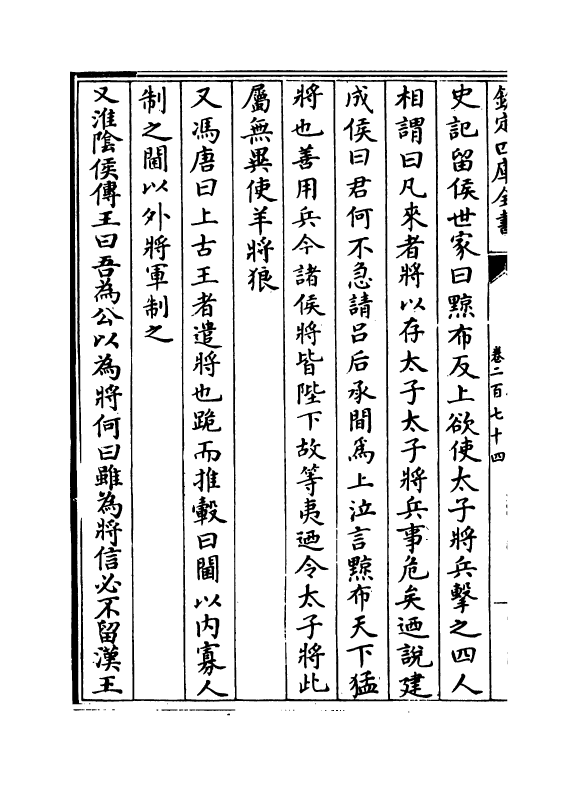 欽定四庫全書
卷二百七十四
史記留侯世家曰黥布反上欲使太子將兵擊之四人
相謂曰凡來者將以存太子太子將兵事危矣廼說建
成侯曰君何不急請吕后承間爲上泣言黥布天下猛
將也善用兵今諸侯將皆陛下故等夷廼令太子將此
屬無異使羊將狼
又馮唐曰上古王者遣將也跪而推轂曰閫以内寡人
制之閫以外將軍制之
又淮陰侯傳王曰吾為公以為將何曰雖為將信必不留漢王